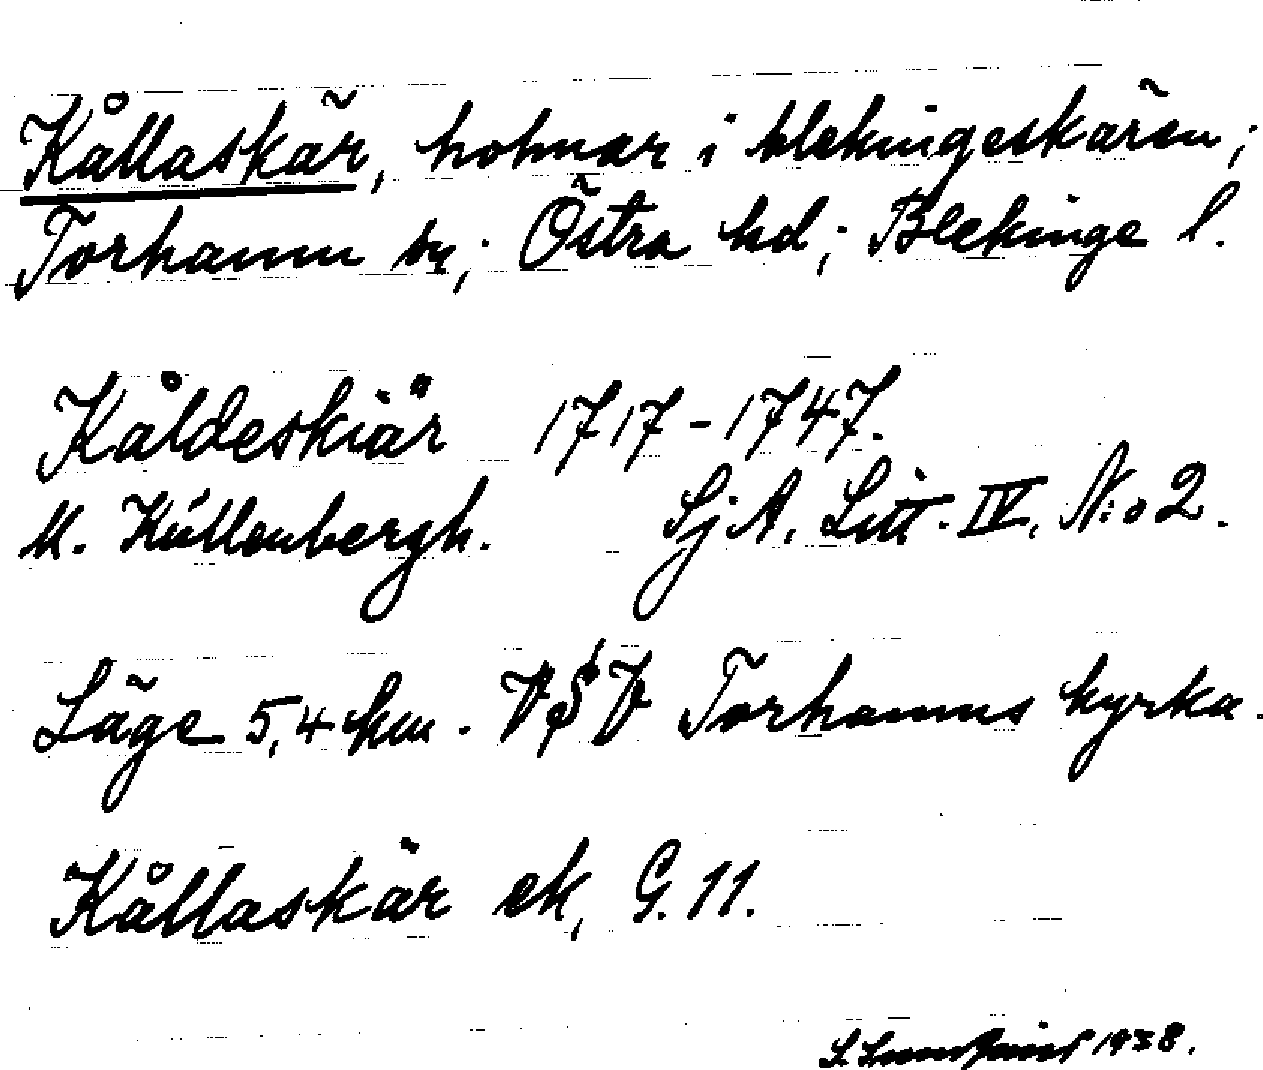 Kållaskär, holmar i blekingeskären;
Torhamn sn; Östra hd; Blekinge l.
Kåldeskiär 1717-1747.
M. Küllenbergh. SjA. Litt. IV, N:o 2.
Läge 5,4 km. VSV Torhamns kyrka.
Kållaskär ek, G. 11.
1938.